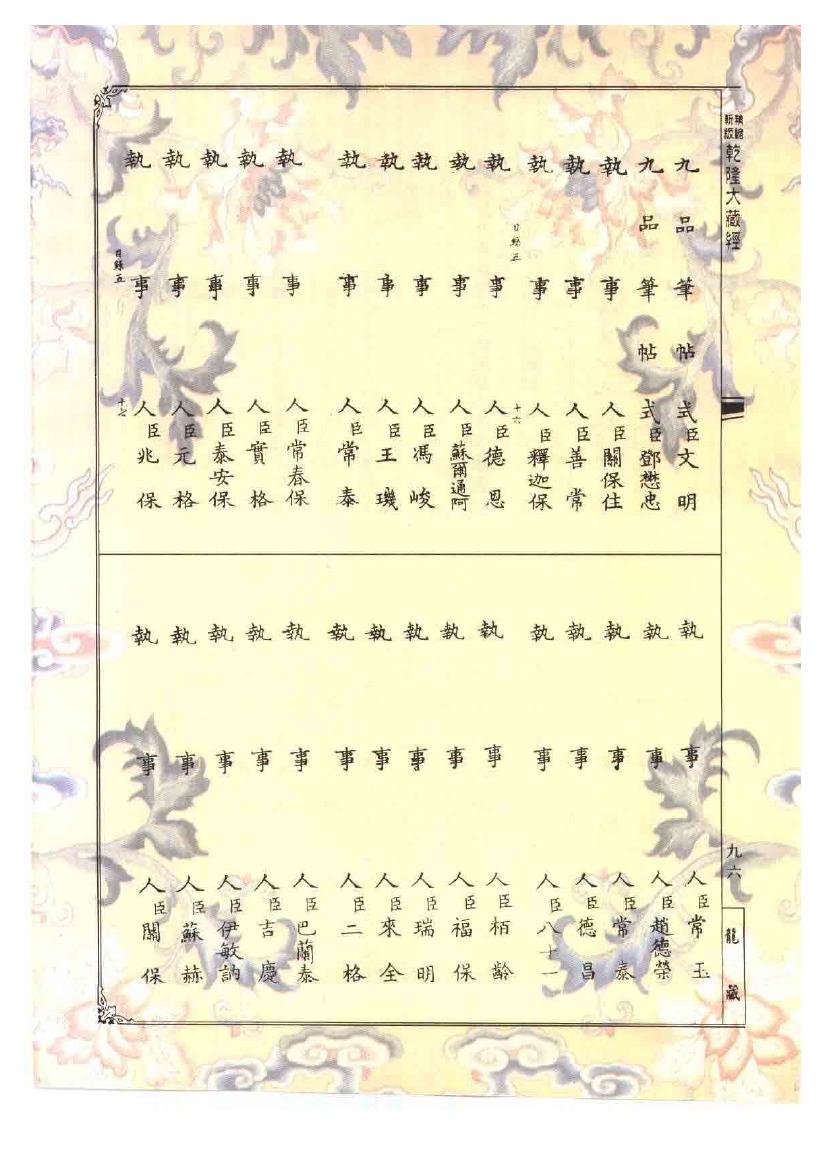 精繪
新版
乾隆大藏經
九品筆帖式臣文明
九品筆帖式臣鄧懋忠
執事人臣關保住
執事人臣善常
執事人臣釋迦保
目錄五
十六
執事人臣德恩
執事人臣蘇爾通阿
執事人臣馮峻
執事人臣王璣
執事人臣常泰
執事人臣常春保
執事人臣實格
執事人臣泰安保
執事人臣元格
執事人臣兆保
目錄五
十七
執事人臣常玉
執事人臣趙德榮
執事人臣常泰
執事人臣德昌
執事人臣八十一
執事人臣栢齡
執事人臣福保
執事人臣瑞明
執事人臣來全
執事人臣二格
執事人臣巴蘭泰
執事人臣吉慶
執事人臣伊敏訥
執事人臣蘇赫
執事人臣關保
九六
龍藏